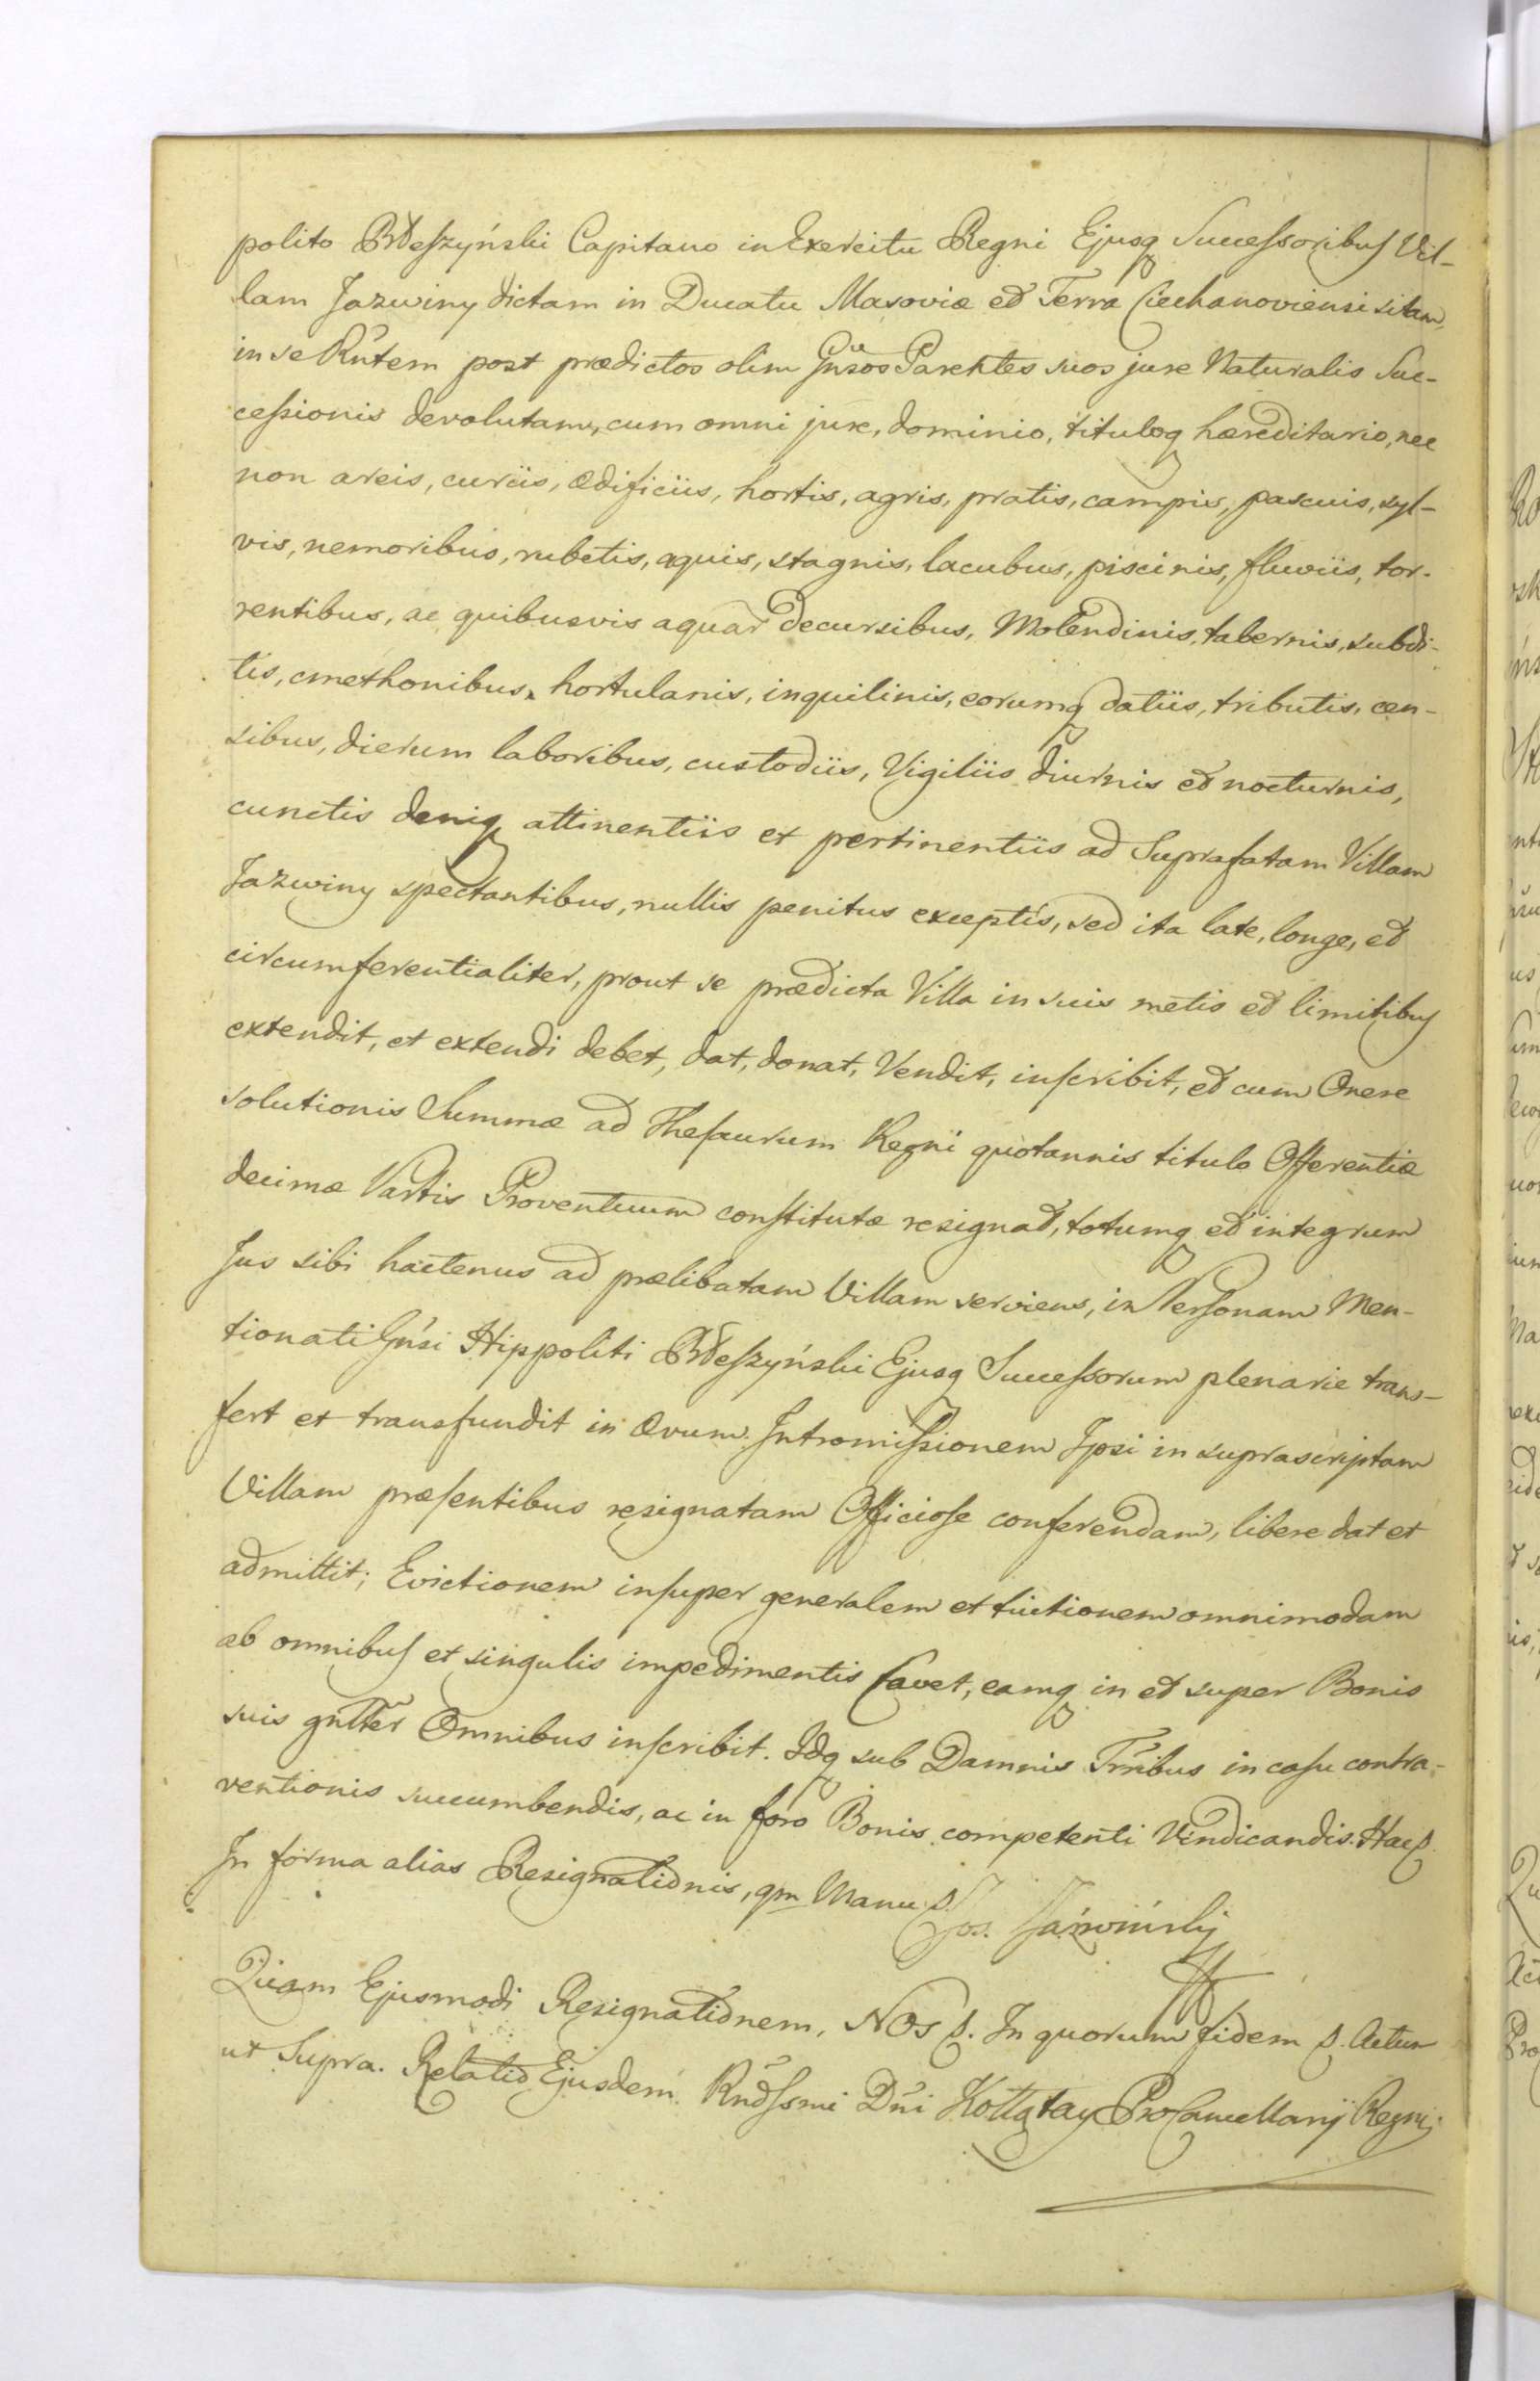 polito Bdeszyński Capitano in Exercitu Regni Ejusq Successoribus Vil-
lam Jazwiny dictam in Ducatu Masoviæ et Terra Ciechanoviensi sitam,
in se Rñtem post prædictos olim Gñsos Parentes suos jure Naturalis Suc-
cessionis devolutam, cum omni jure, dominio, tituloq hæreditario, nec
non areis, curiis, ædificiis, hortis, agris, pratis, campis, pascuis, syl-
vis, nemoribus, rubetis, aquis, stagnis, lacubus, piscinis, fluviis, tor-
rentibus, ac quibusvis aquar decursibus, Molendinis, tabernis, subdi-
tis, cmethonibus, hortulanis, inquilinis, eorumq datiis, tributis, cen-
sibus, dierum laboribus, custodiis, Vigiliis diurnis et nocturnis,
cunctis deniq attinentiis et pertinentiis ad Suprafatam Villam
Jazwiny spectantibus, nullis penitus exceptis, sed ita late, longe, et
circumferentialiter, prout se prædicta Villa in suis metis et limitibus
extendit, et extendi debet, dat, donat, Vendit, inscribit, et cum Onere
solutionis Summæ ad Thesaurum Regni quotannis titulo Offerentiæ
decimæ Partis Proventuum constitutæ resignat, totumq et integrum
Jus sibi hactenus ad prælibatam Villam serviens, in Personam Men-
tionati Gñsi Hippoliti Bdeszyński Ejusq Successorum plenarie trans-
fert et transfundit in ævum. Intromissionem Ipsi in suprascriptam
Villam præsentibus resignatam Officiose conferendam, libere dat et
admittit; Evictionem insuper generalem et tuitionem omnimodam
ab omnibus et singulis impedimentis Cavet, eamq in et super Bonis
suis gñlter Omnibus inscribit. Idq sub Damnis Trribus in casu contra-
ventionis succumbendis, ac in foro Bonis competenti Vindicandis. Hac
In forma alias Resignationis, qm Manu Jos. Jaźwińsky
Quam Ejusmodi Resignationem, NOS p. In quorum fidem p. Actum
ut Supra. Relatio Ejusdem Rndssmi Dñi Kołłątay ProCancellarij Regni.